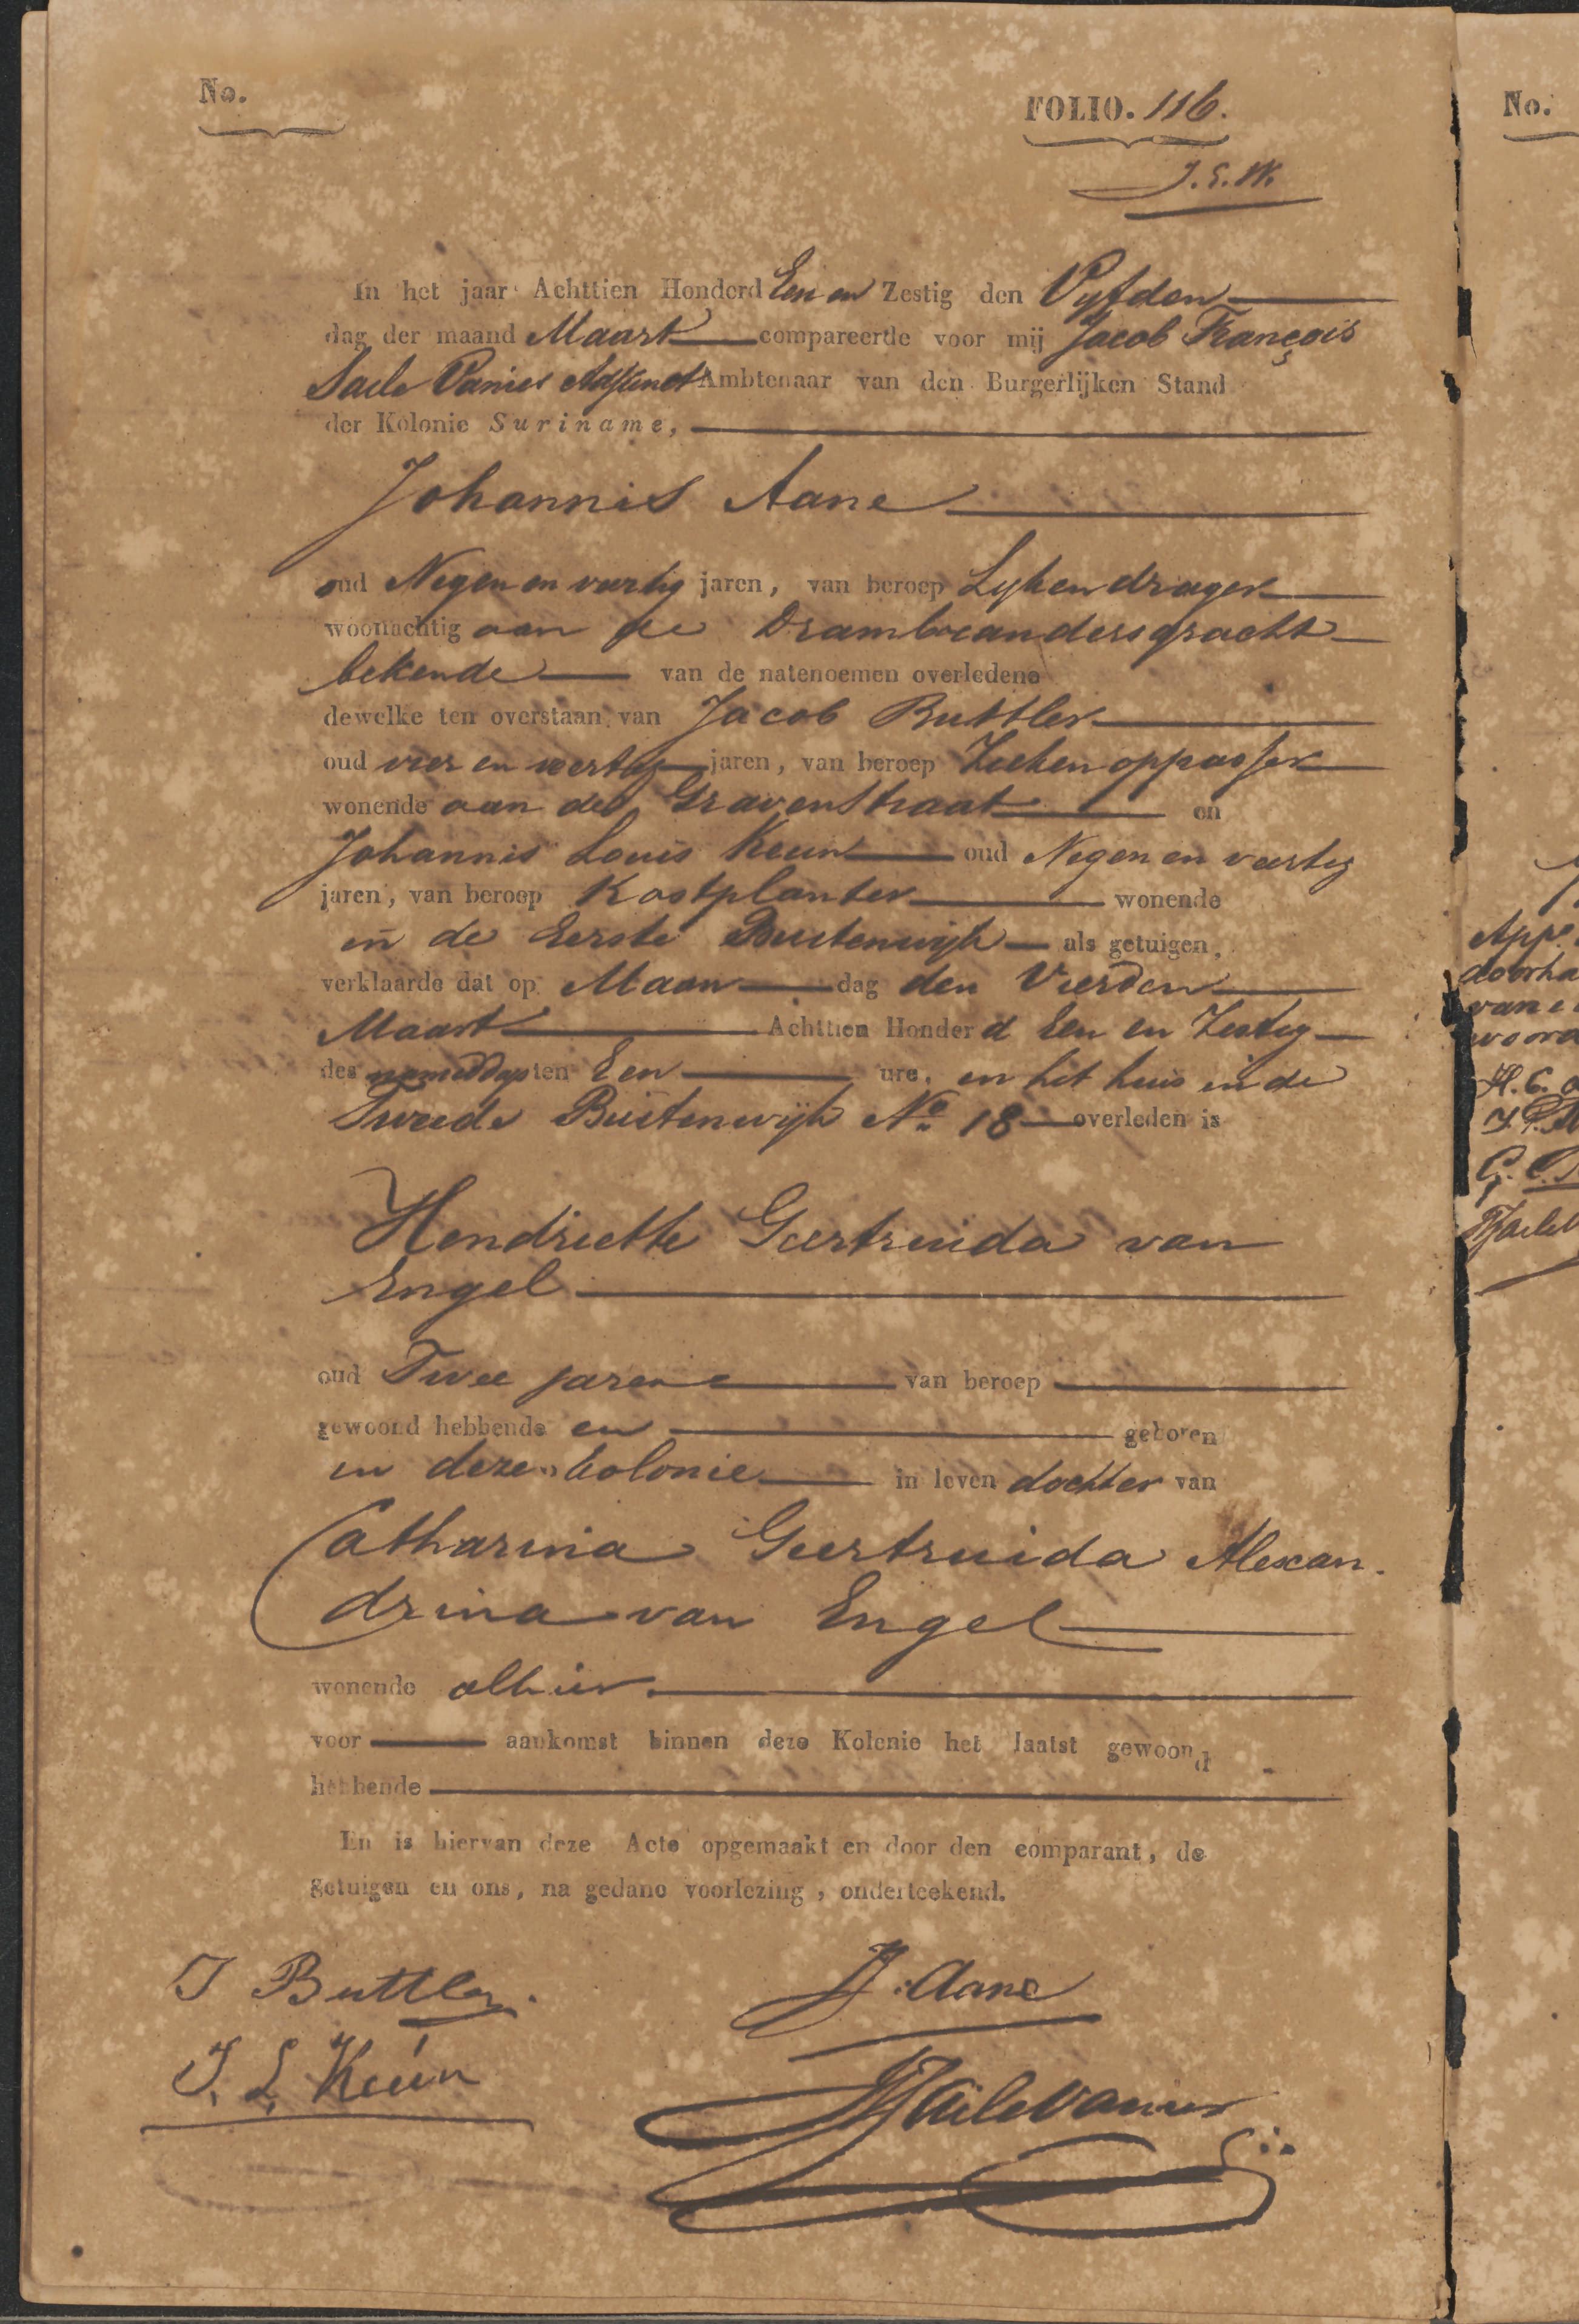 No.
FOLIO. 116.
In het jaar Achttien Honderd Een en Zestig den Vyfden
dag der maand Maart compareerde voor mij Jacob François
Saile Vanier Adjunct Ambtenaar van den Burgerlijken Stand
der Kolonie Suriname,
Johannis Aane
oud Negen en veertig jaren, van beroep Lykendrager
woonachtig aan de Drambrandersgracht
bekende van de natenoemen overledene
dewelke ten overstaan van Jacob Buttler
oud vier en veertig jaren, van beroep Ziekenoppasser
wonende aan de Gravenstraat en
Johannis Louis Keun oud Negen en veertig
jaren, van beroep Kostplanter wonende
in de Eerste Buitenwijk als getuigen,
verklaarde dat op Maandag den Vierden
Maart Achttien Honderd Een en Zestig
des namiddags ten Een ure, in het huis in de
Tweede Buitenwijk No 18 overleden is
Hendriette Geertruida van
Engel
oud Twee jaren van beroep
gewoond hebbende en geboren
in deze Colonie in leven dochter van
Catharina Geertruida Alexan-
drina van Engel
wonende alhier
voor aankomst binnen deze Kolonie het laatst gewoond
hebbende
En is hiervan deze Acte opgemaakt en door den comparant, de
getuigen en ons, na gedane voorlezing, onderteekend.
J Buttler
J. Aane
J. L. Keün
JFSaileVanier
No.